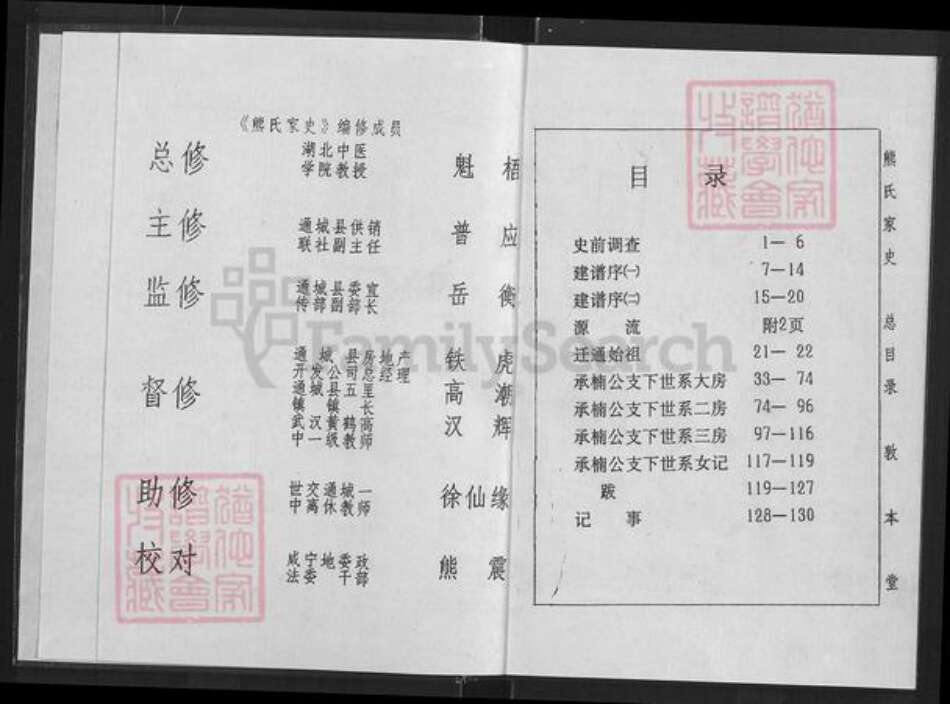 《熊氏家史》编修成员
总修 湖北中医 魁梧
学院教授
主修 通城县供销 普应
联社副主任
监修 通城县委宣 岳衡
传部副部长
督修 通城县房地产 铁虎
开发公司总经理
通城县五里 高潮
镇镇长
武汉黄鹤高 汉辉
中一级教师
助修 世交通城一 徐仙缘
中离休教师
校对 咸宁地委政 熊震
法委干部
目录
史前调查 1—6
建谱序㈠ 7—14
建谱序㈡ 15—20
源流 附2页
迁通始祖 21—22
承楠公支下世系大房 33—74
承楠公支下世系二房 74—96
承楠公支下世系三房 97—116
承楠公支下世系女记 117—119
跋 119—127
记事 128—130
熊氏家史 总目录 敦本堂
FamilySearch